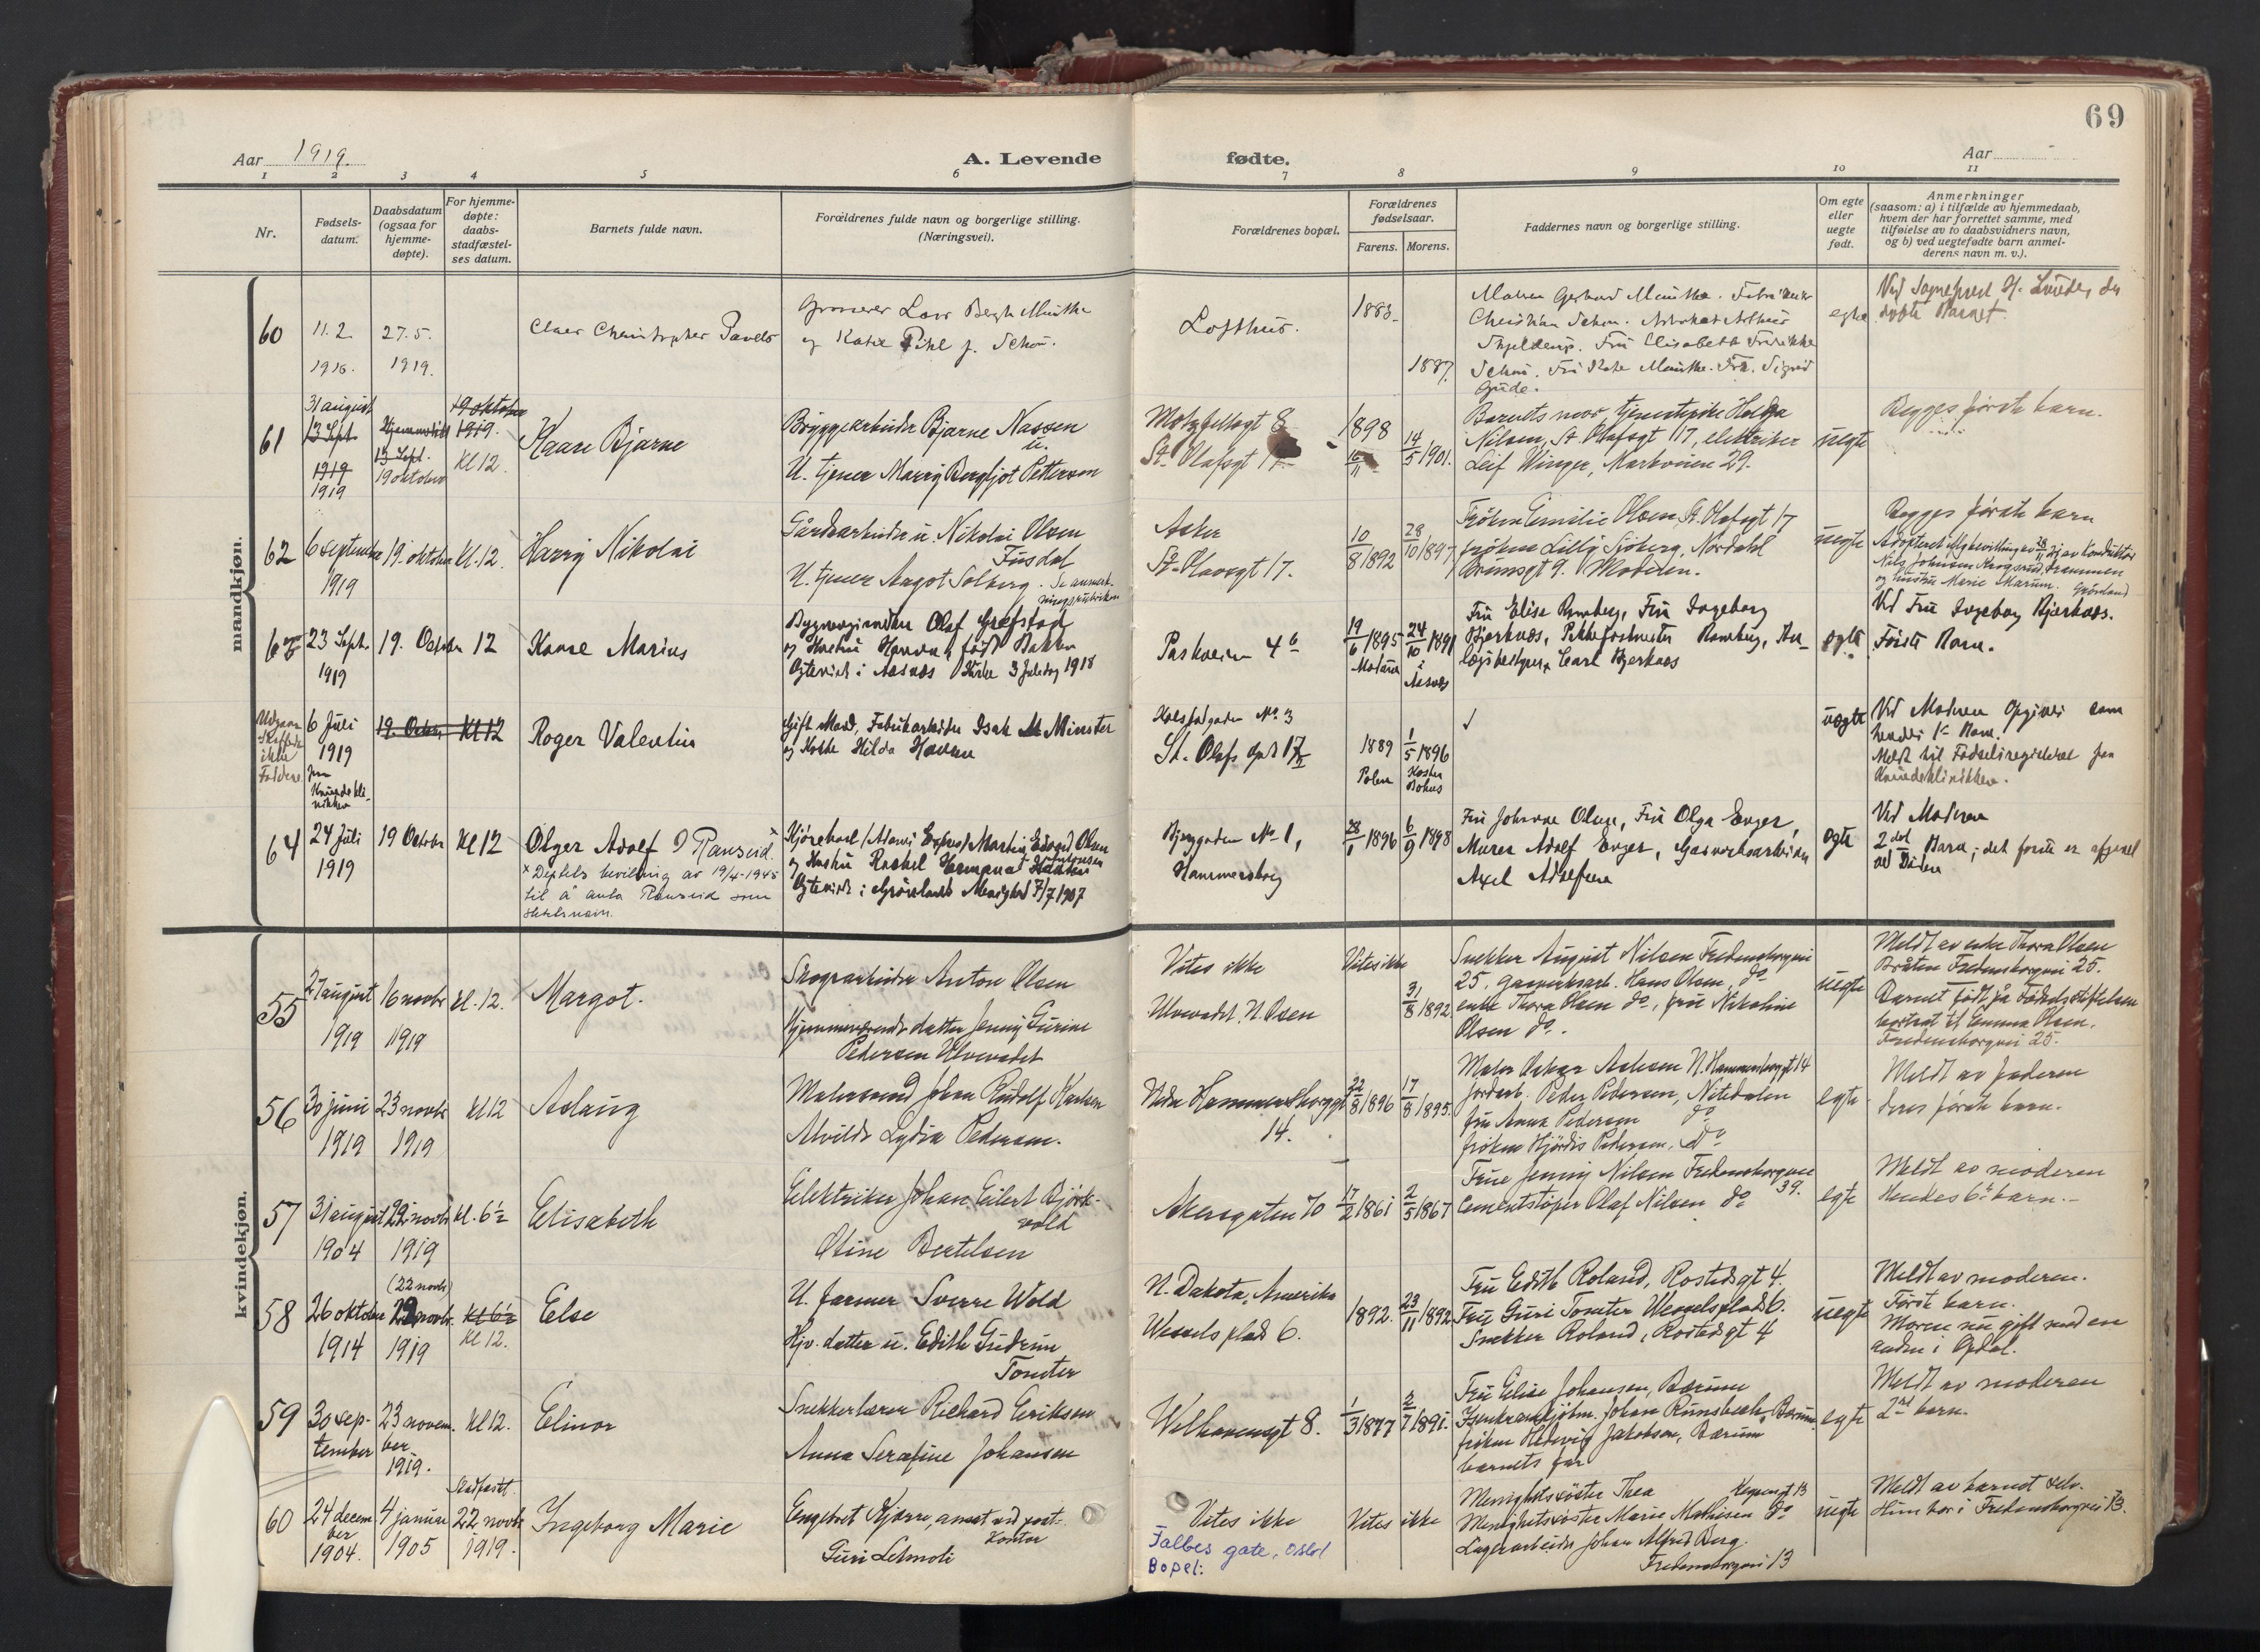 69
Aar 1919.
A. Levende
fødte.
Aar
1 2 3 4 5 6 7 8 9 10 11
Nr.
Fødsels-
datum.
Daabsdatum
(ogsaa for
hjemme-
døpte).
For hjemme-
døpte:
daabs-
stadfæstel-
ses datum.
Barnets fulde navn.
Forældrenes fulde navn og borgerlige stilling.
(Næringsvei).
Forældrenes bopæl.
Forældrenes
fødselsaar.
Farens. Morens.
Faddernes navn og borgerlige stilling.
Om egte
eller
uegte
født.
Anmerkninger
(saasom: a) i tilfælde av hjemmedaab,
hvem der har forrettet samme, med
tilføielse av to daabsvidners navn,
og b) ved uegtefødte barn anmel-
derens navn m. v.).
mandkjøn.
60
11.2.
1916.
27.5.
1919.
Claus Christopher Pavels
Grosserer Munthe
og Katie Pihl f. Schou.
Lofthus.
1883.
1887.
Gerhard Munthe.
Christian Schou. Advokat
Skjelderup. Fru Elisabeth Fredrikke
Schou. Fru Kate Munthe. Frk. Sigrid
Gude.
egte
Ved Sogneprest
døbte Barnet.
61
31 august
13 Sept.
1919
1919
Hjemmedøbt
13 Sept.
19 oktober
19 oktober
1919.
Kl 12.
Kaare Bjarne
Bryggearbeider Bjarne Nassen
u.
U. tjener Marry Bergljot Petterson
Motzfeltsgt 8
St. Olafsgt 17
1898
16/11
14/5 1901.
Barnets mor, tjenestepike Helga
Nilsen, St. Olafsgt 117, elektriker
Leif Winger, Markveien 29.
uegte
Begges første barn.
62
6 september
1919
19. oktober
kl. 12.
Harry Nikolai
Gårdsarbeider u. Nikolai Olsen
Fusdal
U. tjener Aagot Solberg. Se anmerk-
ningsrubrikken
Asker
St. Olavsgt 17.
10/8 1892
28/10 1897
Frøken Emilie Olsen, St. Olafsgt 17
frøken Lilly Sjøberg, Nordahl
Brunsgt 9. Moderen.
uegte
Begges første barn
Nils Johnsen Krogsrud, Drammen
og hustru Marie Marum. Grønland
63
23 Sept.
1919
19. October
12
Kaare Marius
Olaf Grefstad
og Hustru født Bakken
Egteviet i Aasnes Kirke 3 Juledag 1918
Parkveien 4 b
19/6 1895
24/10 1891
i
Aasnes
Fru Elise Ramberg, Fru Ingeborg
Bjerknæs, Ramberg, An-
lægsbestyrer Carl Bjerknæs
egte
Ved Fru Ingeborg Bjerknæs.
Første Barn.
Udgaar
Skaffede
ikke
Faddere
6 Juli
1919
paa
Kvindekli-
nikken
19. October
Kl 12
Roger Valentin
gift Mand, Fabrikarbeider Isak M Minster
og Kokke Hilda Hansen
No. 3
St. Olafs gade 17 II
1889
Polen
1/5 1896
uegte
Ved Moderen Opgives som
hendes 1ste Barn.
Meldt til Fødselsregisteret fra
Kvindeklinikken.
64
24 Juli
1919
19 October
Kl 12
Olger Adolf Ranseid.
x Deptets bevilling av 19/4-1945
til å anta Ranseid som
slektsnavn.
Kjørekarl Martin Edvard Olsen
og Hustru Rachel Hermana
Egteviet i Grønlands Menighed 7/7 1917
Bjerggaden No 1,
Hammersborg
28/1 1896
6/9 1898
Fru Johanne Olsen, Fru Olga Enger,
Murer Adolf Enger, Gasverksarbeider
Axel Adolfsen
egte
Ved Moderen
2det Barn; det første er afgaaet
ved Døden
kvindekjøn.
55
27 august
1919
16 novbr
1919
kl. 12.
Margot.
Skogsarbeider Anton Olsen
Hjemmeværende datter Jenny Gurine
Pedersen Ulvevadet
Vites ikke
Ulvevadet. N. Osen
Vites ikke
31/8 1892
Snekker August Nilsen Fredensborgvei
25, gasverksarb. Hans Olsen, do
enke Thora Olsen do., frue Nikoline
Olsen do.
uegte
Meldt av enke Thora Olsen
Bråten Fredensborgvei 25.
Barnet født på Fødselsstiftelsen
bortsat til Emma Olsen.
Fredensborgvei 25.
56
30 juni
1919
23 novbr
1919
kl 12
Aslaug
Malersvend Johan Rudolf Karlsen
Alvilde Lydia Pedersen.
Nedre Hammersborggt
14.
22/8 1896
17/8 1895.
Maler Oskar Aslesen N. Hammersborggt 14
Jordarb. Peder Pedersen, Nitedalen
fru Anna Pedersen do
frøken Hjørdis Pedersen, do
egte
Meldt av faderen
deres første barn.
57
31 august
1904
22 novbr
1919
kl. 6½
Elisabeth
Elektriker Johan Eilert Bjørk-
vold
Oline Bertelsen
Akersgaten 70
17/2 1861
2/5 1867
Frue Jenny Nilsen Fredensborgveien
39.
Cementstøper Olaf Nilsen do
egte
Meldt av moderen
Hendes 6te barn.
58
26 oktober
1914
(22 novbr)
novbr.
1919
Kl 6½
Kl 12.
Else
U. farmer Sverre Wold
Hjv. datter u. Edith Gudrun
Tomter
N. Dakota, Amerika
Wessels plads 6.
1892.
23/11 1892
Fru Edith Roland, Rostedsgt 4.
Fru Guri Tomter Wesselsplads 6.
Snekker Roland, Rostedsgt 4
uegte
Meldt av moderen.
Første barn.
Moren nu gift med en
anden i Opdal.
59
30 sep-
tember
23 novem-
ber
1919.
kl 12.
Elinor
Snekkerlærer Richard Eriksen
Anna Serafine Johansen
Welhavensgt 8.
1/3 1877
2/7 1891.
Fru Elise Johansen, Bærum
Johan Rønsbech, Bærum
frøken Hedevig Jakobsen, Bærum
barnets far
egte
Meldt av moderen
2net barn.
60
24 decem
ber
1904.
4 januar
1905
Stadfæstet
22 novbr
1919.
Ingeborg Marie
Engebret Kjærre, ansat ved post-
kontor
Guri Lehnoli
Vites ikke
Falbes gate, Oslo!
Bopel:
Vites ikke
Menighetssøster Thea
Menighetssøster Marie Mathisen do
Lagerarbeider Johan Alfred Berg.
Fredensborgvei 13
uegte
Meldt av barnet selv.
Hun bor i Fredensborgvei 13.